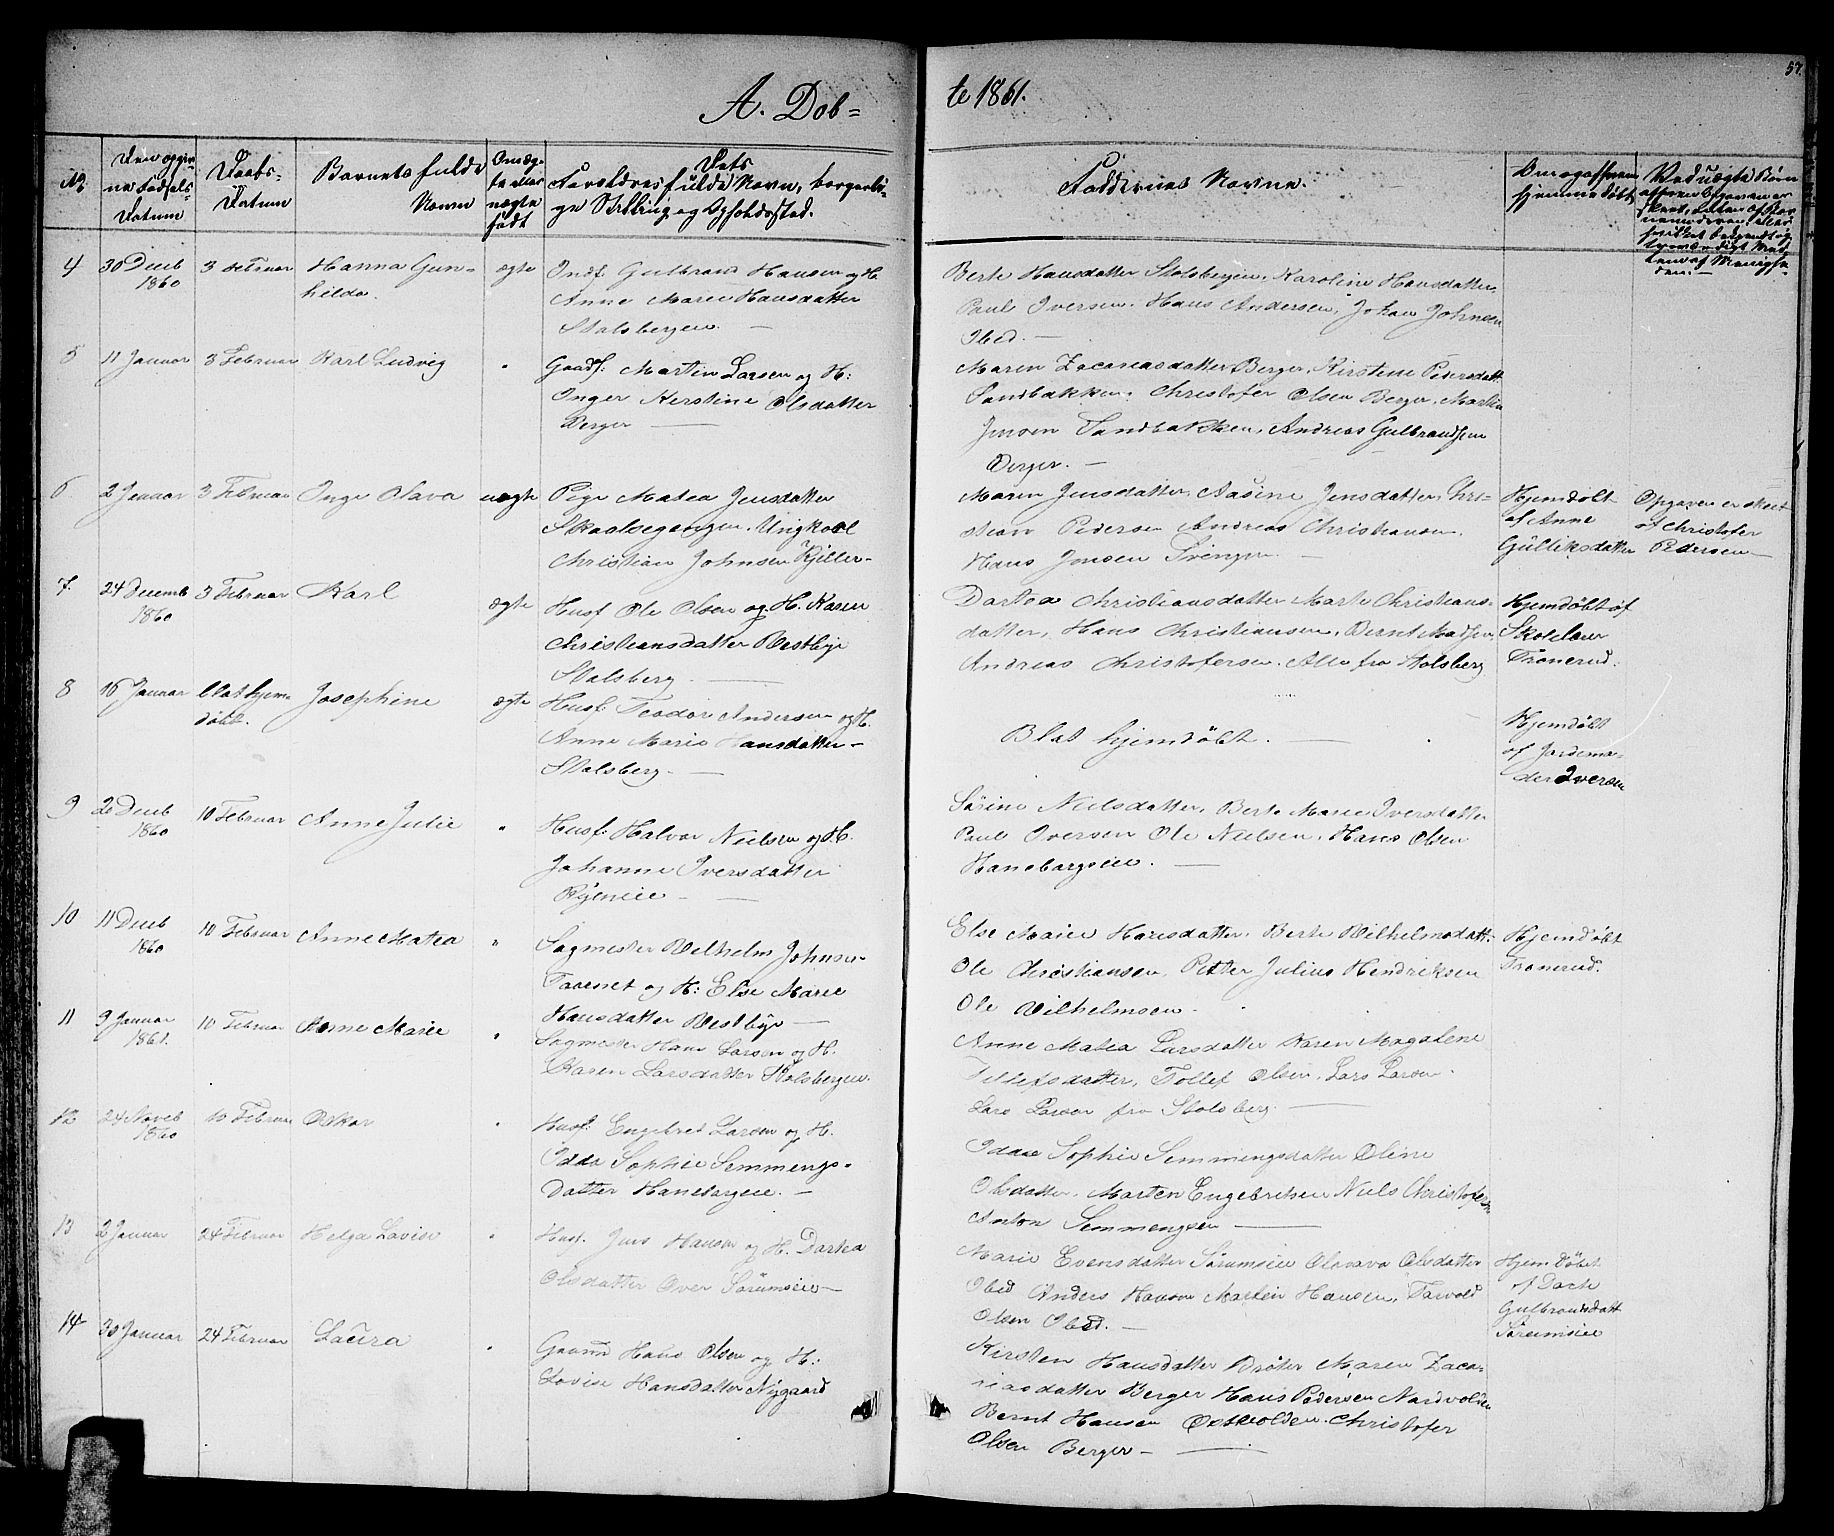 A. Döb=
te 1861.
57.
No
Den opgiv-
ne Fødsels-
Datum
Daabs-
Datum
Barnets fulde
Navn
Om æg-
te eller
uægte
født
Dets
Forældres fulde Navn, borgerli-
ge Stilling og Opholdssted.
Faddernes Navne.
Om og af hvem
hjemmedøbt
Ved uægte Børn
4 30 Deceb 3 Februar Hanna Gun- ægte Inds. Gulbrand Hansen og H.
1860 hilda. Anne Marie Hansdatter
Stalsbergeie. —
Berte Hansdatter Stolsbergeie, Karoline Hansdatter,
Paul Iversen, Hans Andersen, Johan Johnsen
Ibid. —
5 11 Januar 3 Februar Karl Ludvig " Gaads: Martin Larsen og H:
Inger Kerstine Olsdatter
Berger —
Maren Zacariasdatter Berger, Kirstine Pedersdatt:
Sandbakken, Christofer Olsen Berger, Martin
Jensen Sandbakken, Andreas Gulbrandsen
Berger. —
6 2 Januar 3 Februar Inge Olava uægte Pige Matea Jensdatter
Ungkarl
Christian Johnsen
Maren Jensdatter, Aasine Jensdatter, Chri-
stian Pedersen Andreas Christiansen
Hans Jensen
Hjemdøbt
af Anne
Gulliksdatter
Opgaven er skeet
af Christofer
Pedersen —
7. 24 Decemb 3 Februar Karl ægte Husf. Ole Olsen og H. Karen
1860 Christiansdatter Vestbye
Stalsberg. —
Dartea Christiansdatter, Marte Christians-
datter, Hans Christiansen, Bernt Madsen
Andreas Christofersen. Alle fra Stolsberg
Hjemdøbt af
Skolelærer
Tronerud.
8 16 Januar blot hjem- Josephine ægte Husf. Teodor Andersen og H.
døbt. Anne Marie Hansdatter
Stalsberg. —
Blot hjemdøbt. —
Hjemdøbt
af Jordemo-
der Iversen
9 Deceb 10 Februar Anne Julie " Husf. Halvor Nielsen og H.
1860 Johanne Iversdatter
—
Sørine Nielsdatter, Berte Marie Iversdatter
Paul Iversen Ole Nielsen, Hans Olsen
Haneborgeie. —
10 11 Deceb 10 Februar Anne Matea " Sagmester Vilhelm Johnsen
1860 og H: Else Marie
Hansdatter Vestbye —
Else Marie Hansdatter, Berte Vilhelmsdatt:
Ole Christiansen, Petter Julius Hendriksen
Ole Vilhelmsen.
Hjemdøbt
Tronerud.
11 9 Januar 10 Februar Anne Marie " Sagmester Hans Larsen og H.
1861. Karen Larsdatter Stolsbergeie.
Anne Matea Larsdatter Karen Magdalene
Tollefsdatter, Tollef Olsen, Lars Larsen
Lars Larsen fra Stolsberg. —
12 24 Noveb 10 Februar Oskar " Husf: Engebret Larsen og H.
1860 Idda Sophie Semmings-
datter Haneborgeie. —
Idae Sophie Semmengsdatter Oline
Olsdatter, Marten Engebretsen Niels Christofersen
Anton Semmengsen —
13 2 Januar 24 Februar Helga Lovise " Husf. Jens Hansen og H. Dartea
Olsdatter Over Sørumseie —
Marie Evensdatter Sørumseie Olavava Olsdatter
Ibid Anders Hansen Martin Hansen, Torvold
Olsen Ibid. —
Hjemdøbt
af Dorte
Gulbrandsdatt
Sørumseie
14 30 Januar 24 Februar Laura " Gaard Hans Olsen og H:
Lovise Hansdatter Nygaard
Kirsten Hansdatter Brøter Maren Zaca-
riasdatter Berger Hans Pedersen Nordvolden
Bernt Hansen Østvolden. Christofer
Olsen Berger —